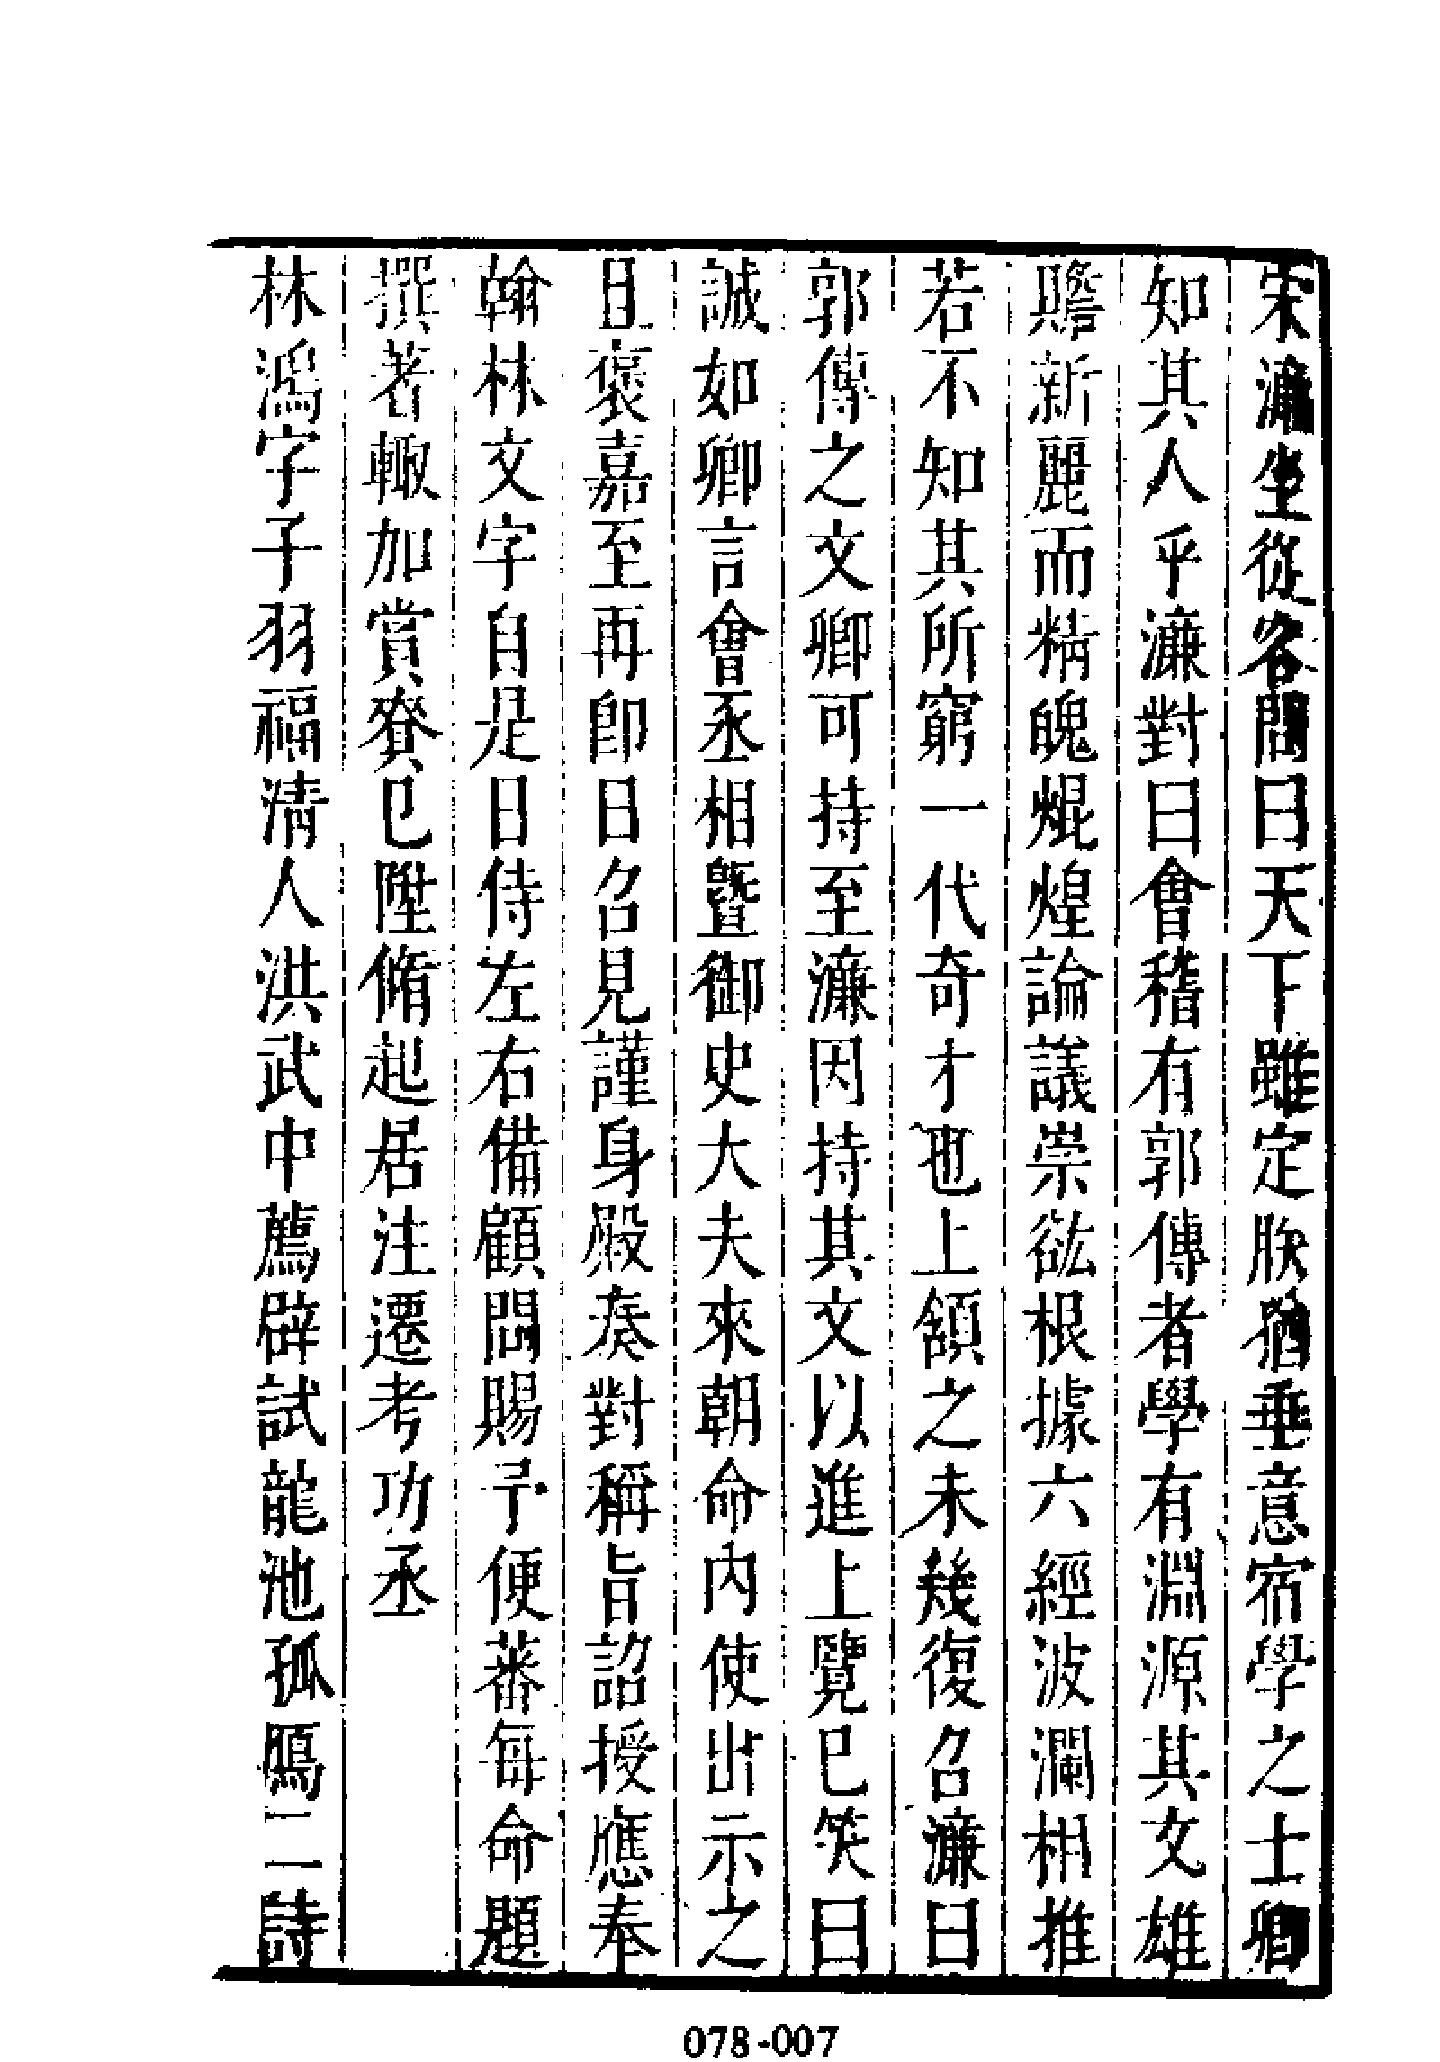 宋濂坐從容問曰天下雖定朕猶垂意宿學之士卿
知其人乎濂對曰會稽有郭傳者學有淵源其文雄
贍新麗而精魄焜煌論議崇谹根據六經波瀾相推
若不知其所窮一代奇才也上頷之未幾復召濂曰
郭傳之文卿可持至濂因持其文以進上覽已笑曰
誠如卿言會丞相曁御史大夫來朝命內使出示之
且褒嘉至再卽日召見謹身殿奏對稱旨詔授應奉
翰林文字自是日侍左右備顧問賜予便蕃每命題
撰著輙加賞賚已陞脩起居注遷考功丞
林鴻字子羽福清人洪武中薦辟試龍池孤鴈二詩
078-007